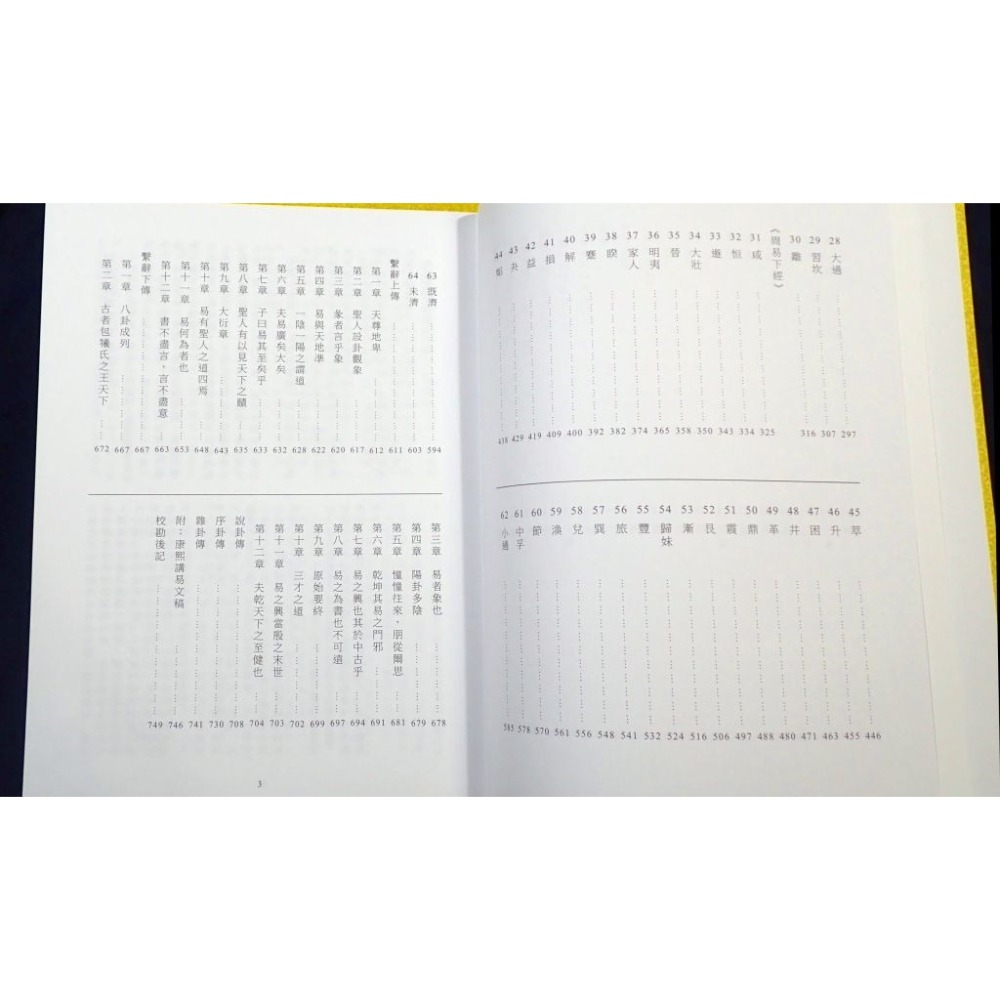 28 大過 297
29 習坎 307
30 離 316
《周易下經》
31 咸 325
32 恒 334
33 遯 343
34 大壯 350
35 晉 358
36 明夷 365
37 家人 374
38 睽 382
39 蹇 392
40 解 400
41 損 409
42 益 419
43 夬 429
44 姤 438
45 萃 446
46 升 455
47 困 463
48 井 471
49 革 480
50 鼎 488
51 震 497
52 艮 506
53 漸 516
54 歸妹 524
55 豐 532
56 旅 541
57 巽 548
58 兌 556
59 渙 561
60 節 570
61 中孚 578
62 小過 585
63 既濟 594
64 未濟 603
繫辭上傳 611
第一章 天尊地卑 612
第二章 聖人設卦觀象 617
第三章 彖者言乎象 620
第四章 易與天地準 622
第五章 一陰一陽之謂道 628
第六章 夫易廣矣大矣 632
第七章 子曰易其至矣乎 633
第八章 聖人有以見天下之賾 635
第九章 大衍章 643
第十章 易有聖人之道四焉 648
第十一章 易何為者也 653
第十二章 書不盡言,言不盡意 663
繫辭下傳 667
第一章 八卦成列 667
第二章 古者包犧氏之王天下 672
第三章 易者象也 678
第四章 陽卦多陰 679
第五章 憧憧往來,朋從爾思 681
第六章 乾坤其易之門邪 691
第七章 易之興也其於中古乎 694
第八章 易之為書也不可遠 697
第九章 原始要終 699
第十章 三才之道 702
第十一章 易之興當殷之末世 703
第十二章 夫乾天下之至健也 704
說卦傳 708
序卦傳 730
雜卦傳 741
附:康熙講易文稿 746
校勘後記 749
3